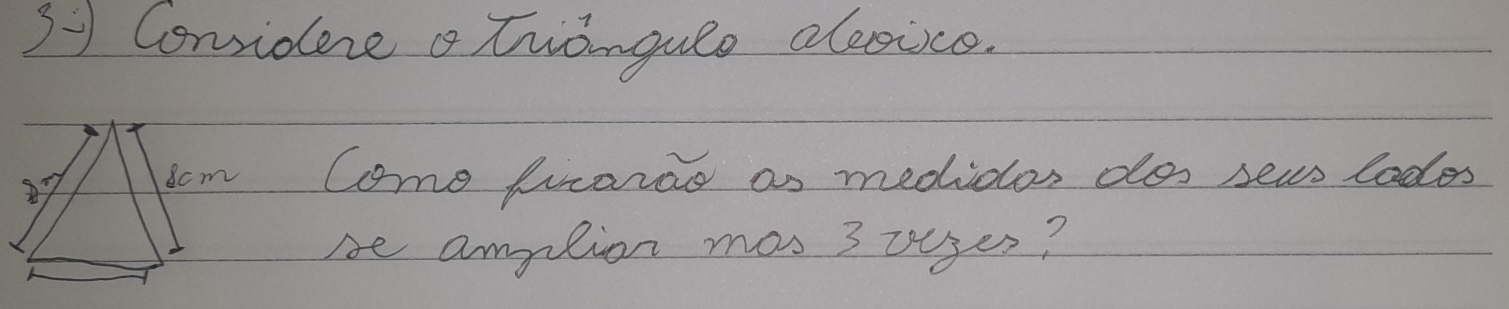 3-) Considere o triângulo abaixo.
8cm Como ficarão as medidas dos seus lados
se ampliar mos 3 vezes?